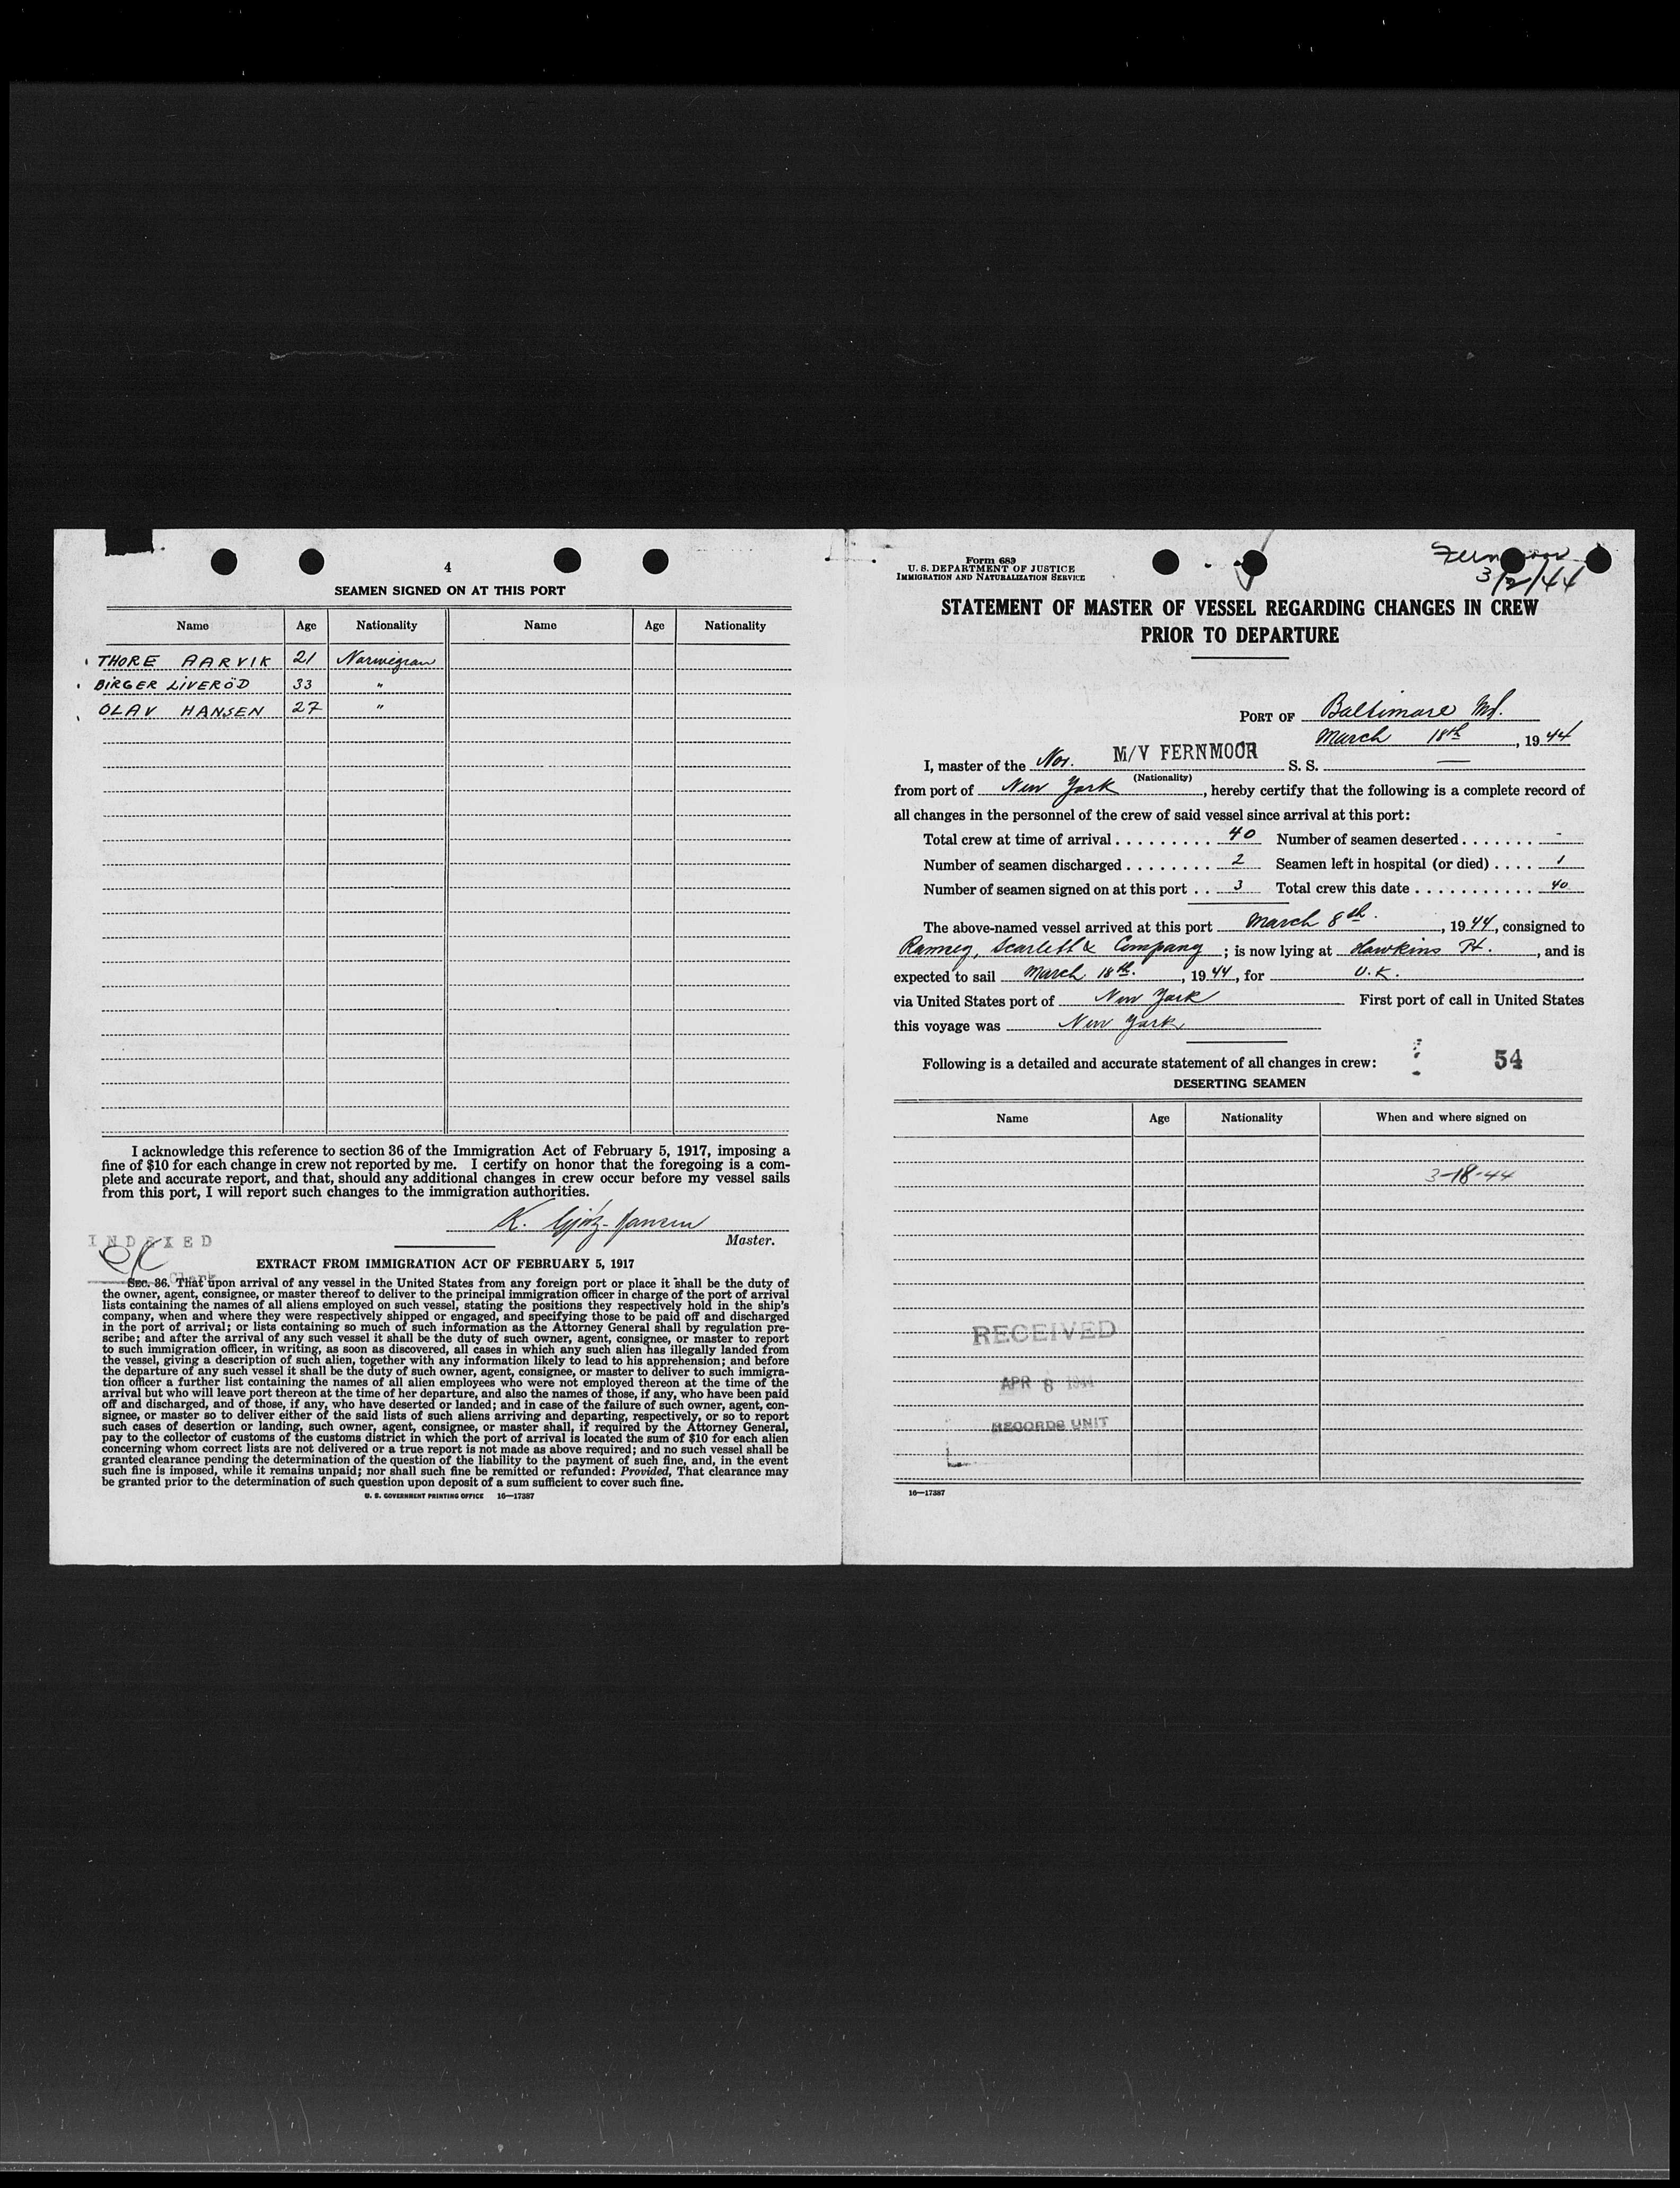 4
SEAMEN SIGNED ON AT THIS PORT
Name Age Nationality Name Age Nationality
THORE AARVIK 21 Norwegian
BIRGER LIVERÖD 33 "
OLAV HANSEN 27 "
I acknowledge this reference to section 36 of the Immigration Act of February 5, 1917, imposing a
fine of $10 for each change in crew not reported by me. I certify on honor that the foregoing is a com-
plete and accurate report, and that, should any additional changes in crew occur before my vessel sails
from this port, I will report such changes to the immigration authorities.
K.
Master.
INDEXED
Clerk
EXTRACT FROM IMMIGRATION ACT OF FEBRUARY 5, 1917
SEC. 36. That upon arrival of any vessel in the United States from any foreign port or place it shall be the duty of
the owner, agent, consignee, or master thereof to deliver to the principal immigration officer in charge of the port of arrival
lists containing the names of all aliens employed on such vessel, stating the positions they respectively hold in the ship's
company, when and where they were respectively shipped or engaged, and specifying those to be paid off and discharged
in the port of arrival; or lists containing so much of such information as the Attorney General shall by regulation pre-
scribe; and after the arrival of any such vessel it shall be the duty of such owner, agent, consignee, or master to report
to such immigration officer, in writing, as soon as discovered, all cases in which any such alien has illegally landed from
the vessel, giving a description of such alien, together with any information likely to lead to his apprehension; and before
the departure of any such vessel it shall be the duty of such owner, agent, consignee, or master to deliver to such immigra-
tion officer a further list containing the names of all alien employees who were not employed thereon at the time of the
arrival but who will leave port thereon at the time of her departure, and also the names of those, if any, who have been paid
off and discharged, and of those, if any, who have deserted or landed; and in case of the failure of such owner, agent, con-
signee, or master so to deliver either of the said lists of such aliens arriving and departing, respectively, or so to report
such cases of desertion or landing, such owner, agent, consignee, or master shall, if required by the Attorney General,
pay to the collector of customs of the customs district in which the port of arrival is located the sum of $10 for each alien
concerning whom correct lists are not delivered or a true report is not made as above required; and no such vessel shall be
granted clearance pending the determination of the question of the liability to the payment of such fine, and, in the event
such fine is imposed, while it remains unpaid; nor shall such fine be remitted or refunded: Provided, That clearance may
be granted prior to the determination of such question upon deposit of a sum sufficient to cover such fine.
U. S. GOVERNMENT PRINTING OFFICE 16—17387
Form 689
U. S. DEPARTMENT OF JUSTICE
IMMIGRATION AND NATURALIZATION SERVICE
Fernmoor
3/2/44
STATEMENT OF MASTER OF VESSEL REGARDING CHANGES IN CREW
PRIOR TO DEPARTURE
PORT OF Baltimore Md.
March 18th, 1944
I, master of the Nor. M/V FERNMOOR S. S. —
(Nationality)
from port of New York, hereby certify that the following is a complete record of
all changes in the personnel of the crew of said vessel since arrival at this port:
Total crew at time of arrival . . . . . . . . . 40 Number of seamen deserted . . . . . . . -
Number of seamen discharged . . . . . . . . 2 Seamen left in hospital (or died) . . . . 1
Number of seamen signed on at this port . . 3 Total crew this date . . . . . . . . . . . 40
The above-named vessel arrived at this port March 8th., 1944, consigned to
Ramsey, Scarlett & Company; is now lying at Hawkins Pt., and is
expected to sail March 18th., 1944, for U.K.
via United States port of New York First port of call in United States
this voyage was New York
Following is a detailed and accurate statement of all changes in crew: 54
DESERTING SEAMEN
Name Age Nationality When and where signed on
3-18-44
RECEIVED
APR 8 1944
RECORDS UNIT
16—17387